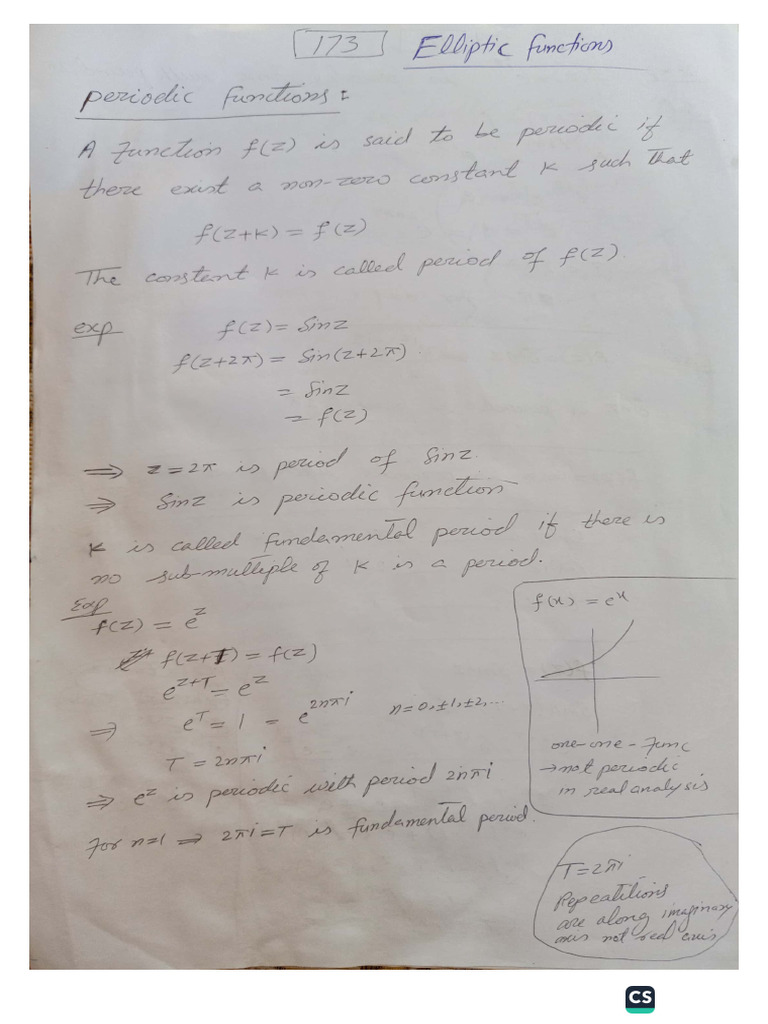 173
Elliptic functions
Periodic functions:
A Function f(z) is said to be periodic if
there exist a non-zero constant K such that
f(z+K) = f(z)
The constant K is called period of f(z).
exp
f(z) = Sinz
f(z+2π) = Sin(z+2π).
= Sinz
= f(z)
⇒ z = 2π is period of Sinz.
⇒ Sinz is periodic function
K is called fundamental period if there is
no sub-multiple of K is a period.
Exp
f(z) = e^z
f(z+T) = f(z)
e^{z+T} = e^z
⇒ e^T = 1 = e^{2nπi} n=0,±1,±2,...
T = 2nπi
⇒ e^z is periodic with period 2nπi
For n=1 ⇒ 2πi=T is fundamental period.
f(x) = e^x
one-one-Func
→not periodic
in real analysis
T=2πi
Repeatitions
are along imaginary
axis not real axis
CS